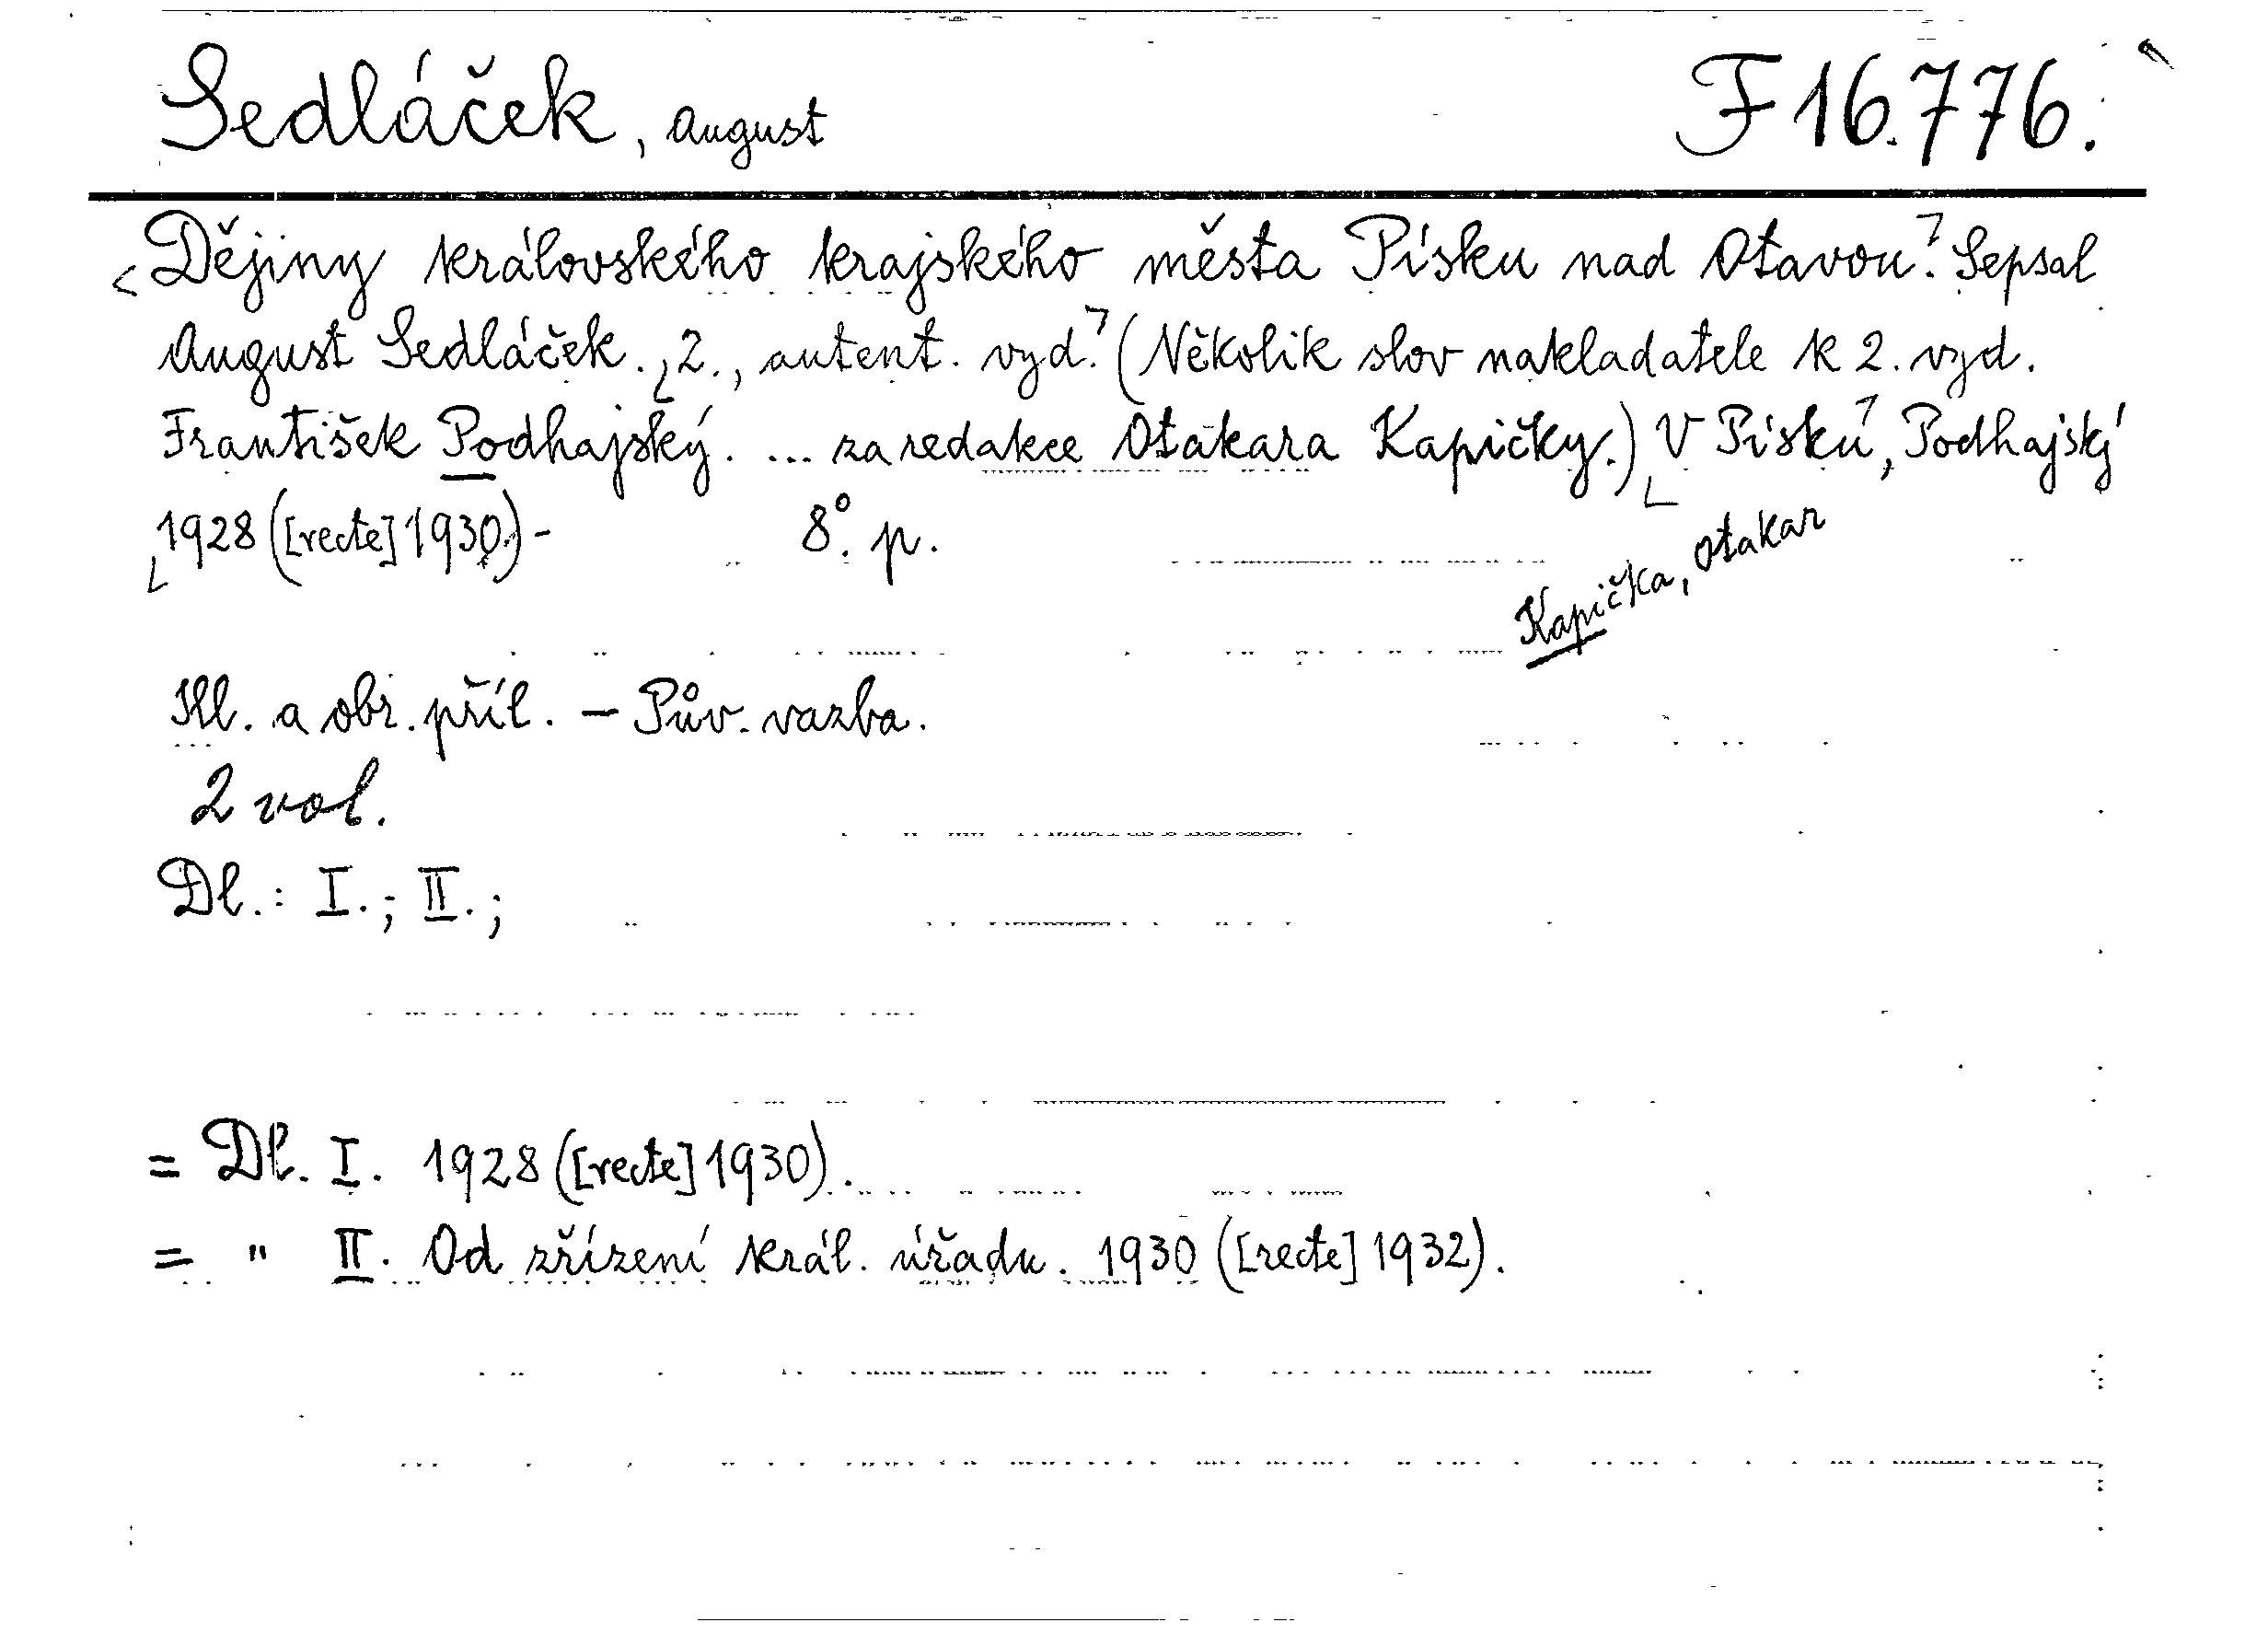 Sedláček, August F 16.776.
Dějiny královského krajského města Písku nad Otavou. Sepsal
August Sedláček. 2., autent. vyd. (Několik slov nakladatele k 2. vyd.
František Podhajský. ... za redakce Otakara Kapičky.) V Písku, Podhajský
1928 ([recte] 1930.) - 8°. p.
Kapička, Otakar
Ill. a obr. příl. - Pův. vazba.
2 vol.
Dl.: I.; II.;
= Dl. I. 1928 ([recte] 1930).
= " II. Od zřízení král. úřadu. 1930 ([recte] 1932).